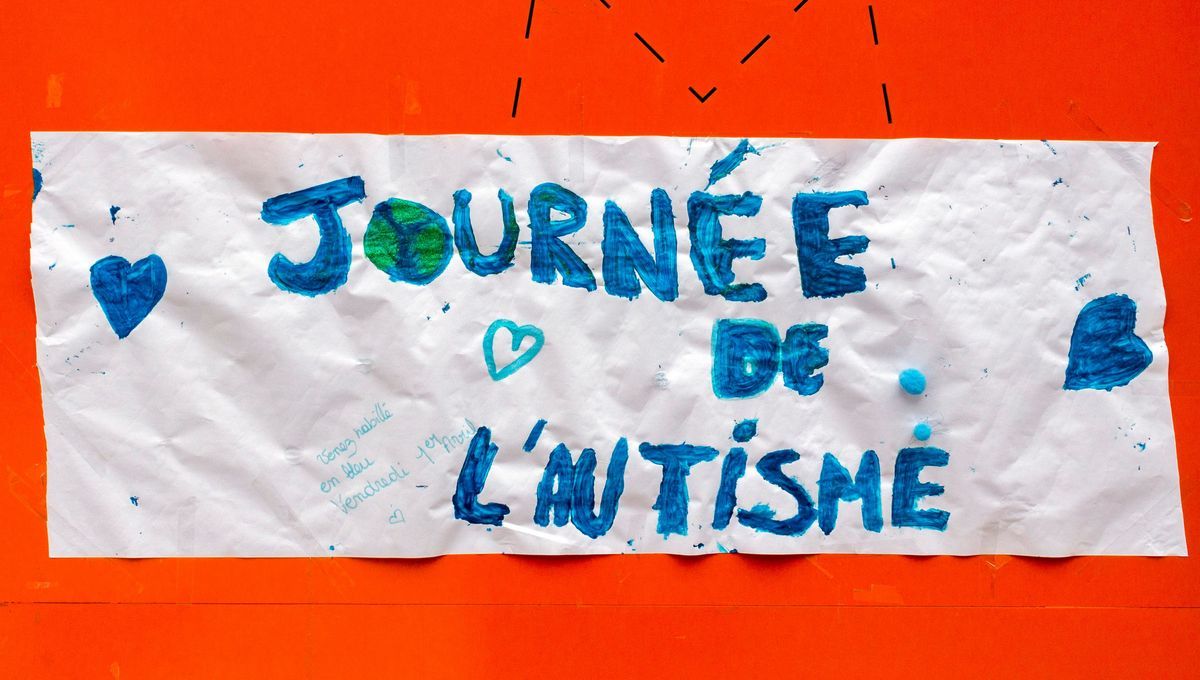 JOURNÉE
DE
L'AUTiSME
Venez habillé
en bleu
Vendredi 1er Avril